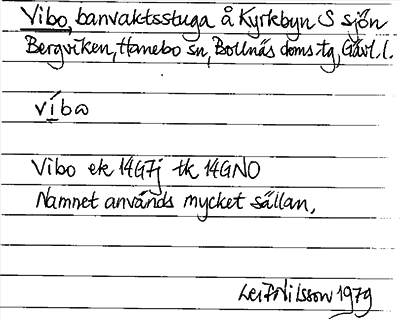 Vibo, banvaktsstuga å Kyrkbyn S sjön
Bergviken, Hanebo sn, Bollnäs doms.tg, Gävl.l.
vi̱bɷ
Vibo ek 14G7j tk 14GNO
Namnet används mycket sällan.
Leif Nilsson 1979